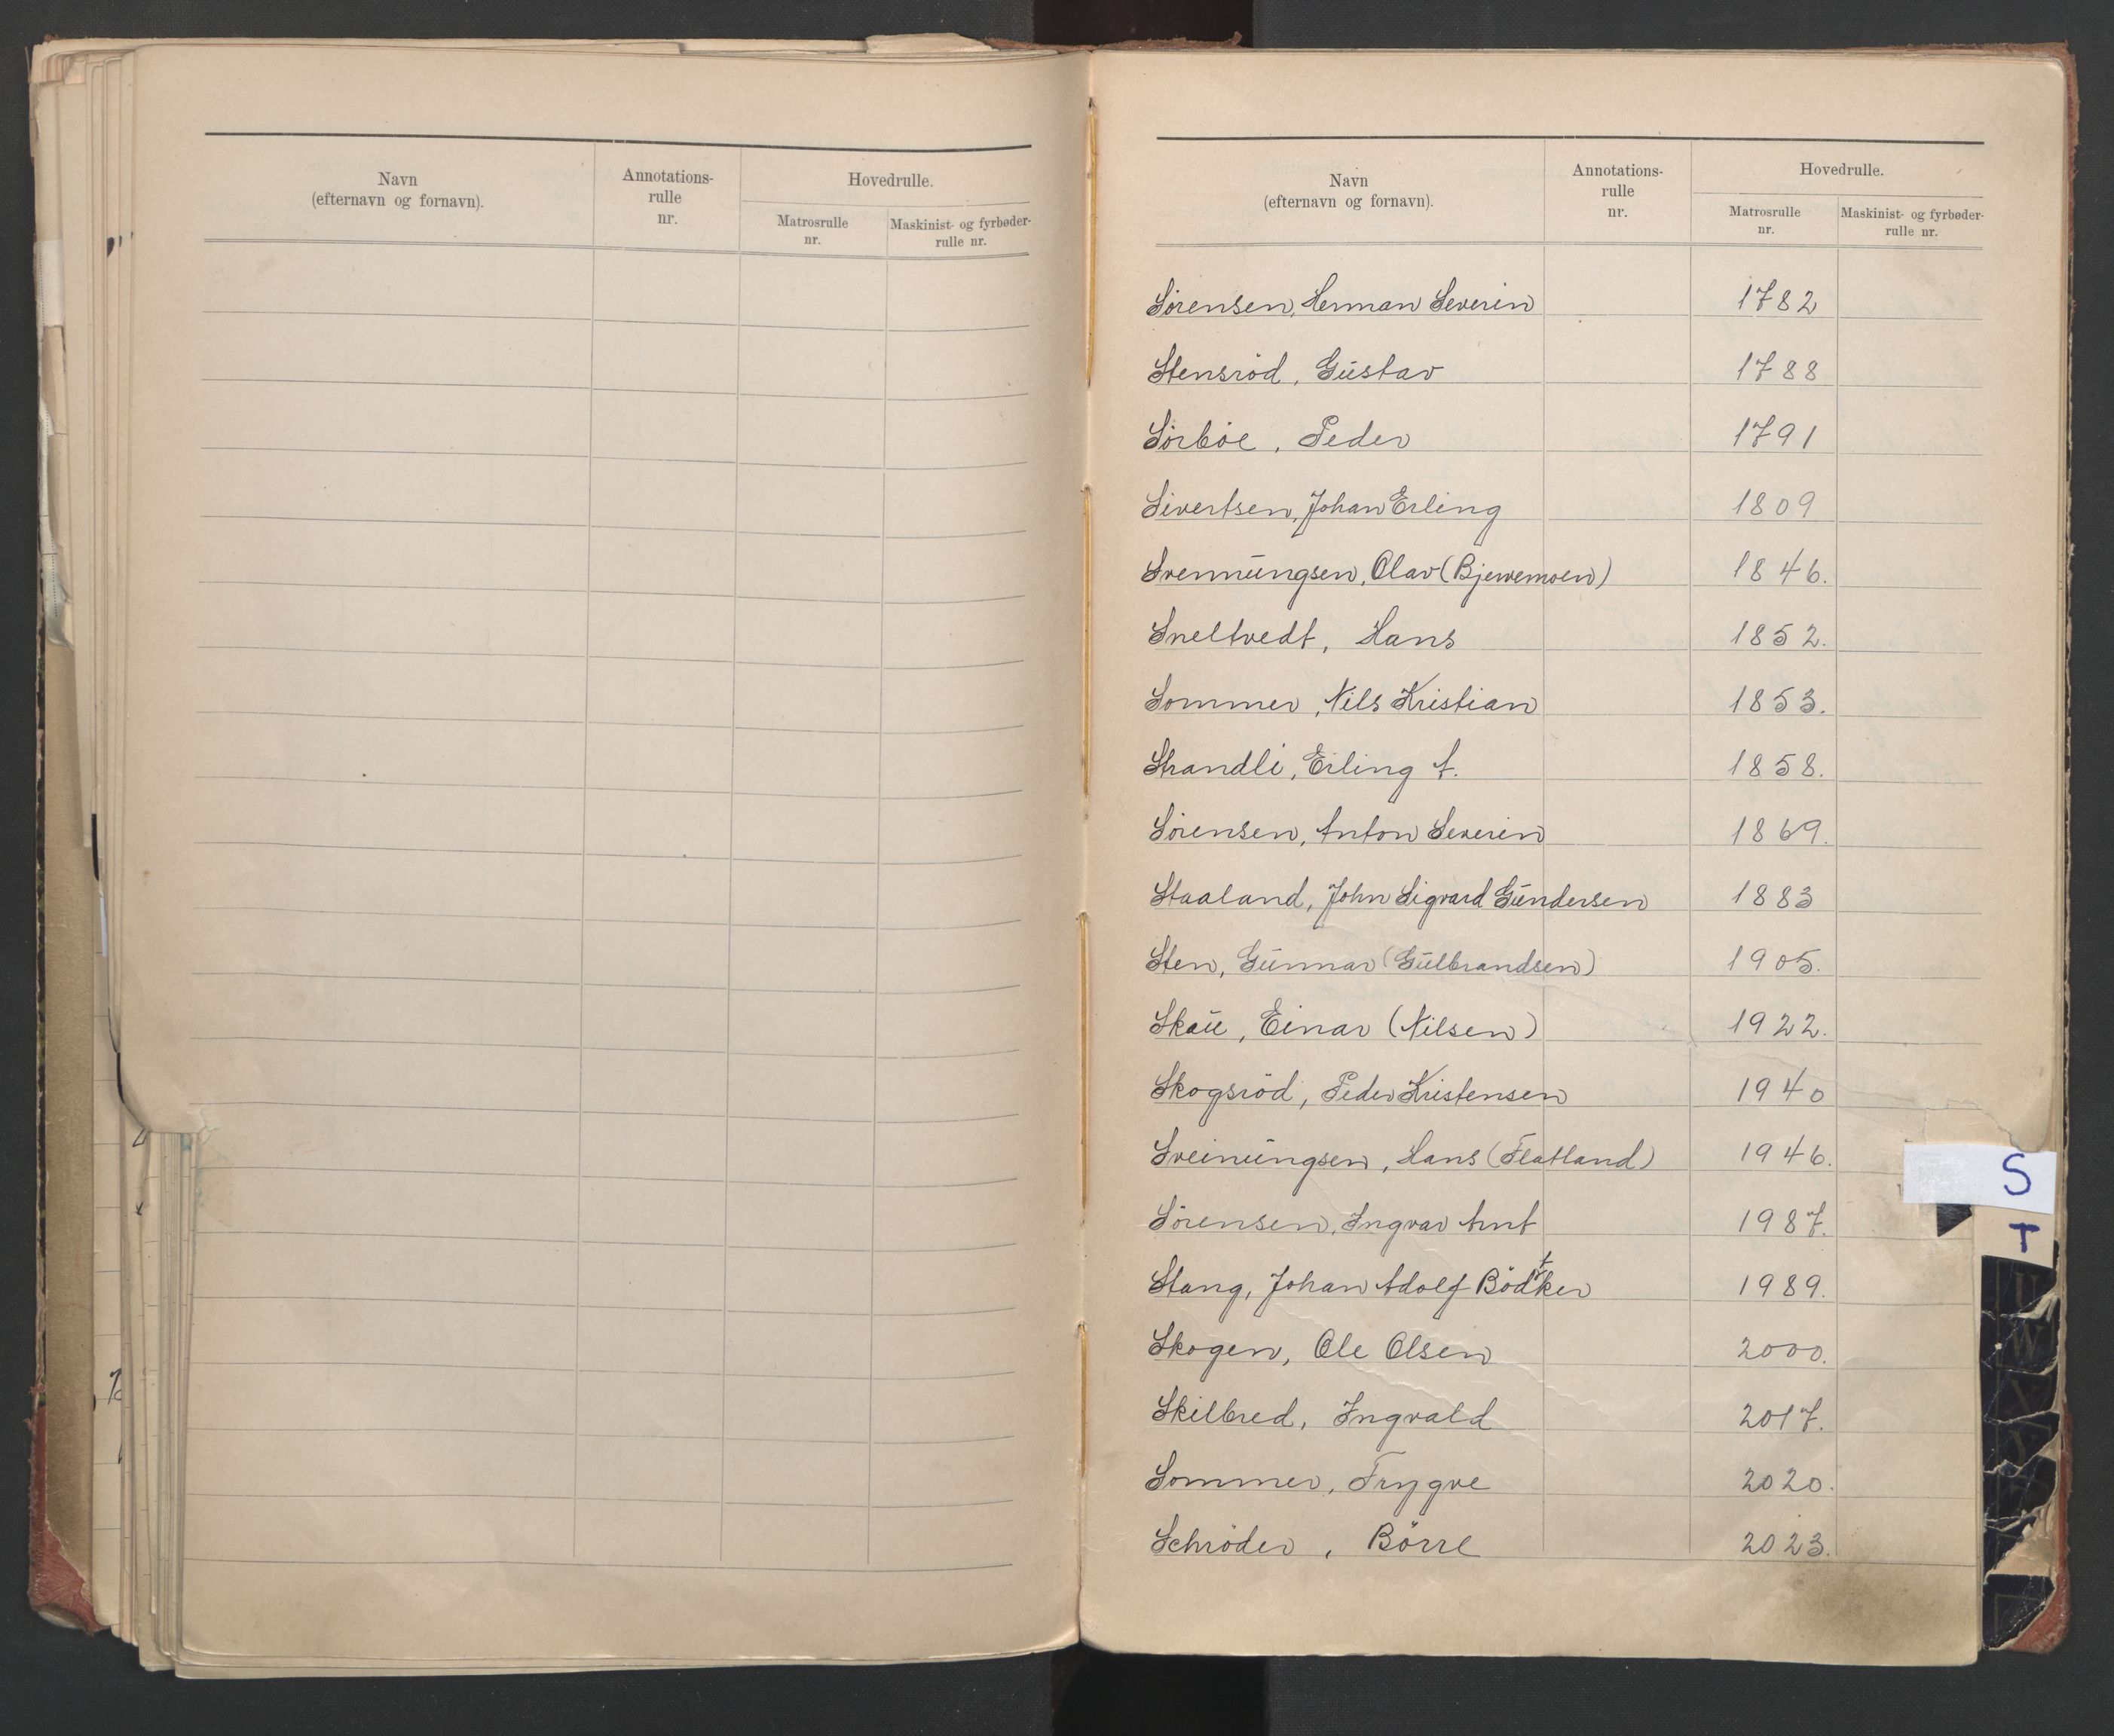 Navn
(efternavn og fornavn).
Annotations-
rulle
nr.
Hovedrulle.
Matrosrulle
nr.
Maskinist- og fyrbøder-
rulle nr.
Navn
(efternavn og fornavn).
Annotations-
rulle
nr.
Hovedrulle.
Matrosrulle
nr.
Maskinist- og fyrbøder-
rulle nr.
Sörensen, Herman Severin 1782
Stensröd, Gustav 1788
Sörböe, Peder 1791
Sivertsen, Johan Erling 1809
Svennungsen, Olav (Bjervemoen) 1846.
Sneltvedt, Hans 1852.
Sommer, Nils Kristian 1853.
Strandli, Erling A. 1858.
Sörensen, Anton Severin 1869.
Staaland, John Sigvard Gundersen 1883
Sten, Gunnar (Gulbrandsen) 1905.
Skau, Einar (Nilsen) 1922.
Skogsröd, Peder Kristensen 1940
Sveinungsen, Hans (Flatland) 1946.
Sörensen, Ingvar Arnt 1987.
Stang, Johan Adolf Bödtker 1989.
Skogen, Ole Olsen 2000.
Skilbred, Ingvald 2017.
Sommer, Trygve 2020.
Schröder, Börre 2023.
S
T
U
W